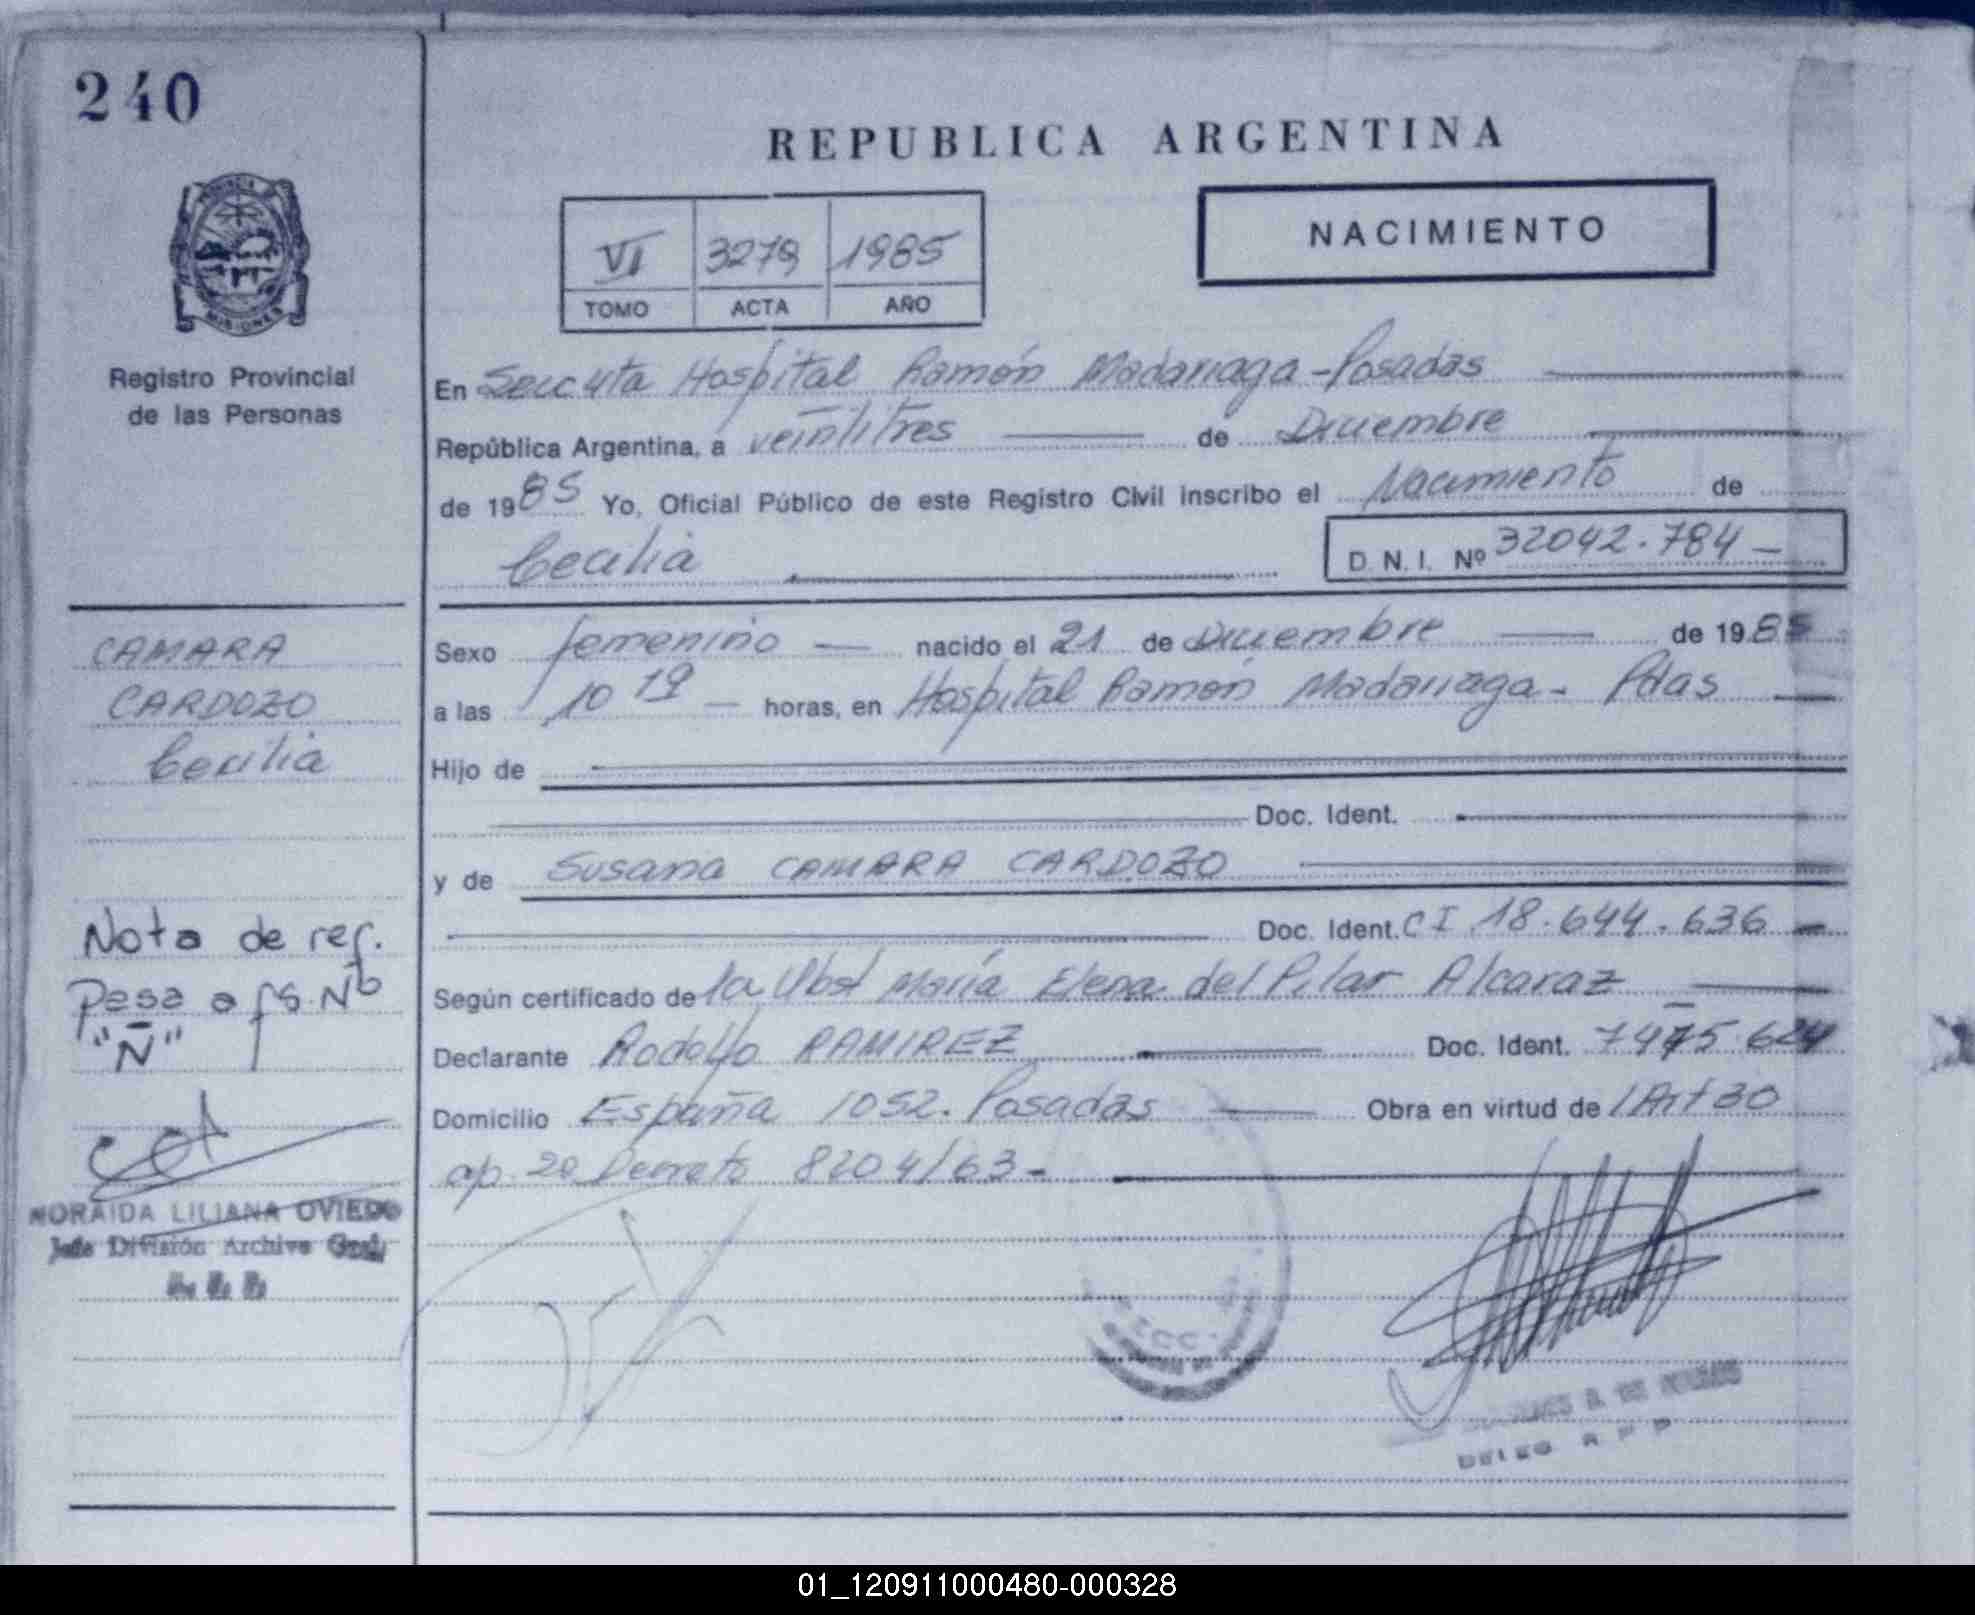 240
REPUBLICA ARGENTINA
NACIMIENTO
VI 3279 1985
TOMO ACTA AÑO
MISIONES
Registro Provincial
de las Personas
En Secc 4ta Hospital Ramón Madariaga - Posadas
República Argentina, a veintitres de Diciembre
de 1985 Yo, Oficial Público de este Registro Civil inscribo el Nacimiento de
Cecilia D. N. I. Nº 32042.784
CAMARA
CARDOZO
Cecilia
Sexo femenino nacido el 21 de Diciembre de 1985
a las 10 19 horas, en Hospital Ramón Madariaga - Pdas
Hijo de
Doc. Ident.
y de Susana CAMARA CARDOZO
Doc. Ident. CI 18.644.636
Según certificado de la Obst María Elena del Pilar Alcaraz
Declarante Rodolfo RAMIREZ Doc. Ident. 7475624
Domicilio España 1052. Posadas Obra en virtud de / Art 30
ap. 2o Decreto 8204/63-
Nota de ref.
Pasa a fs. Nº
"Ñ"
NORAIDA LILIANA OVIEDO
Jefe División Archivo Gral.
DELEG R P P
01_120911000480-000328